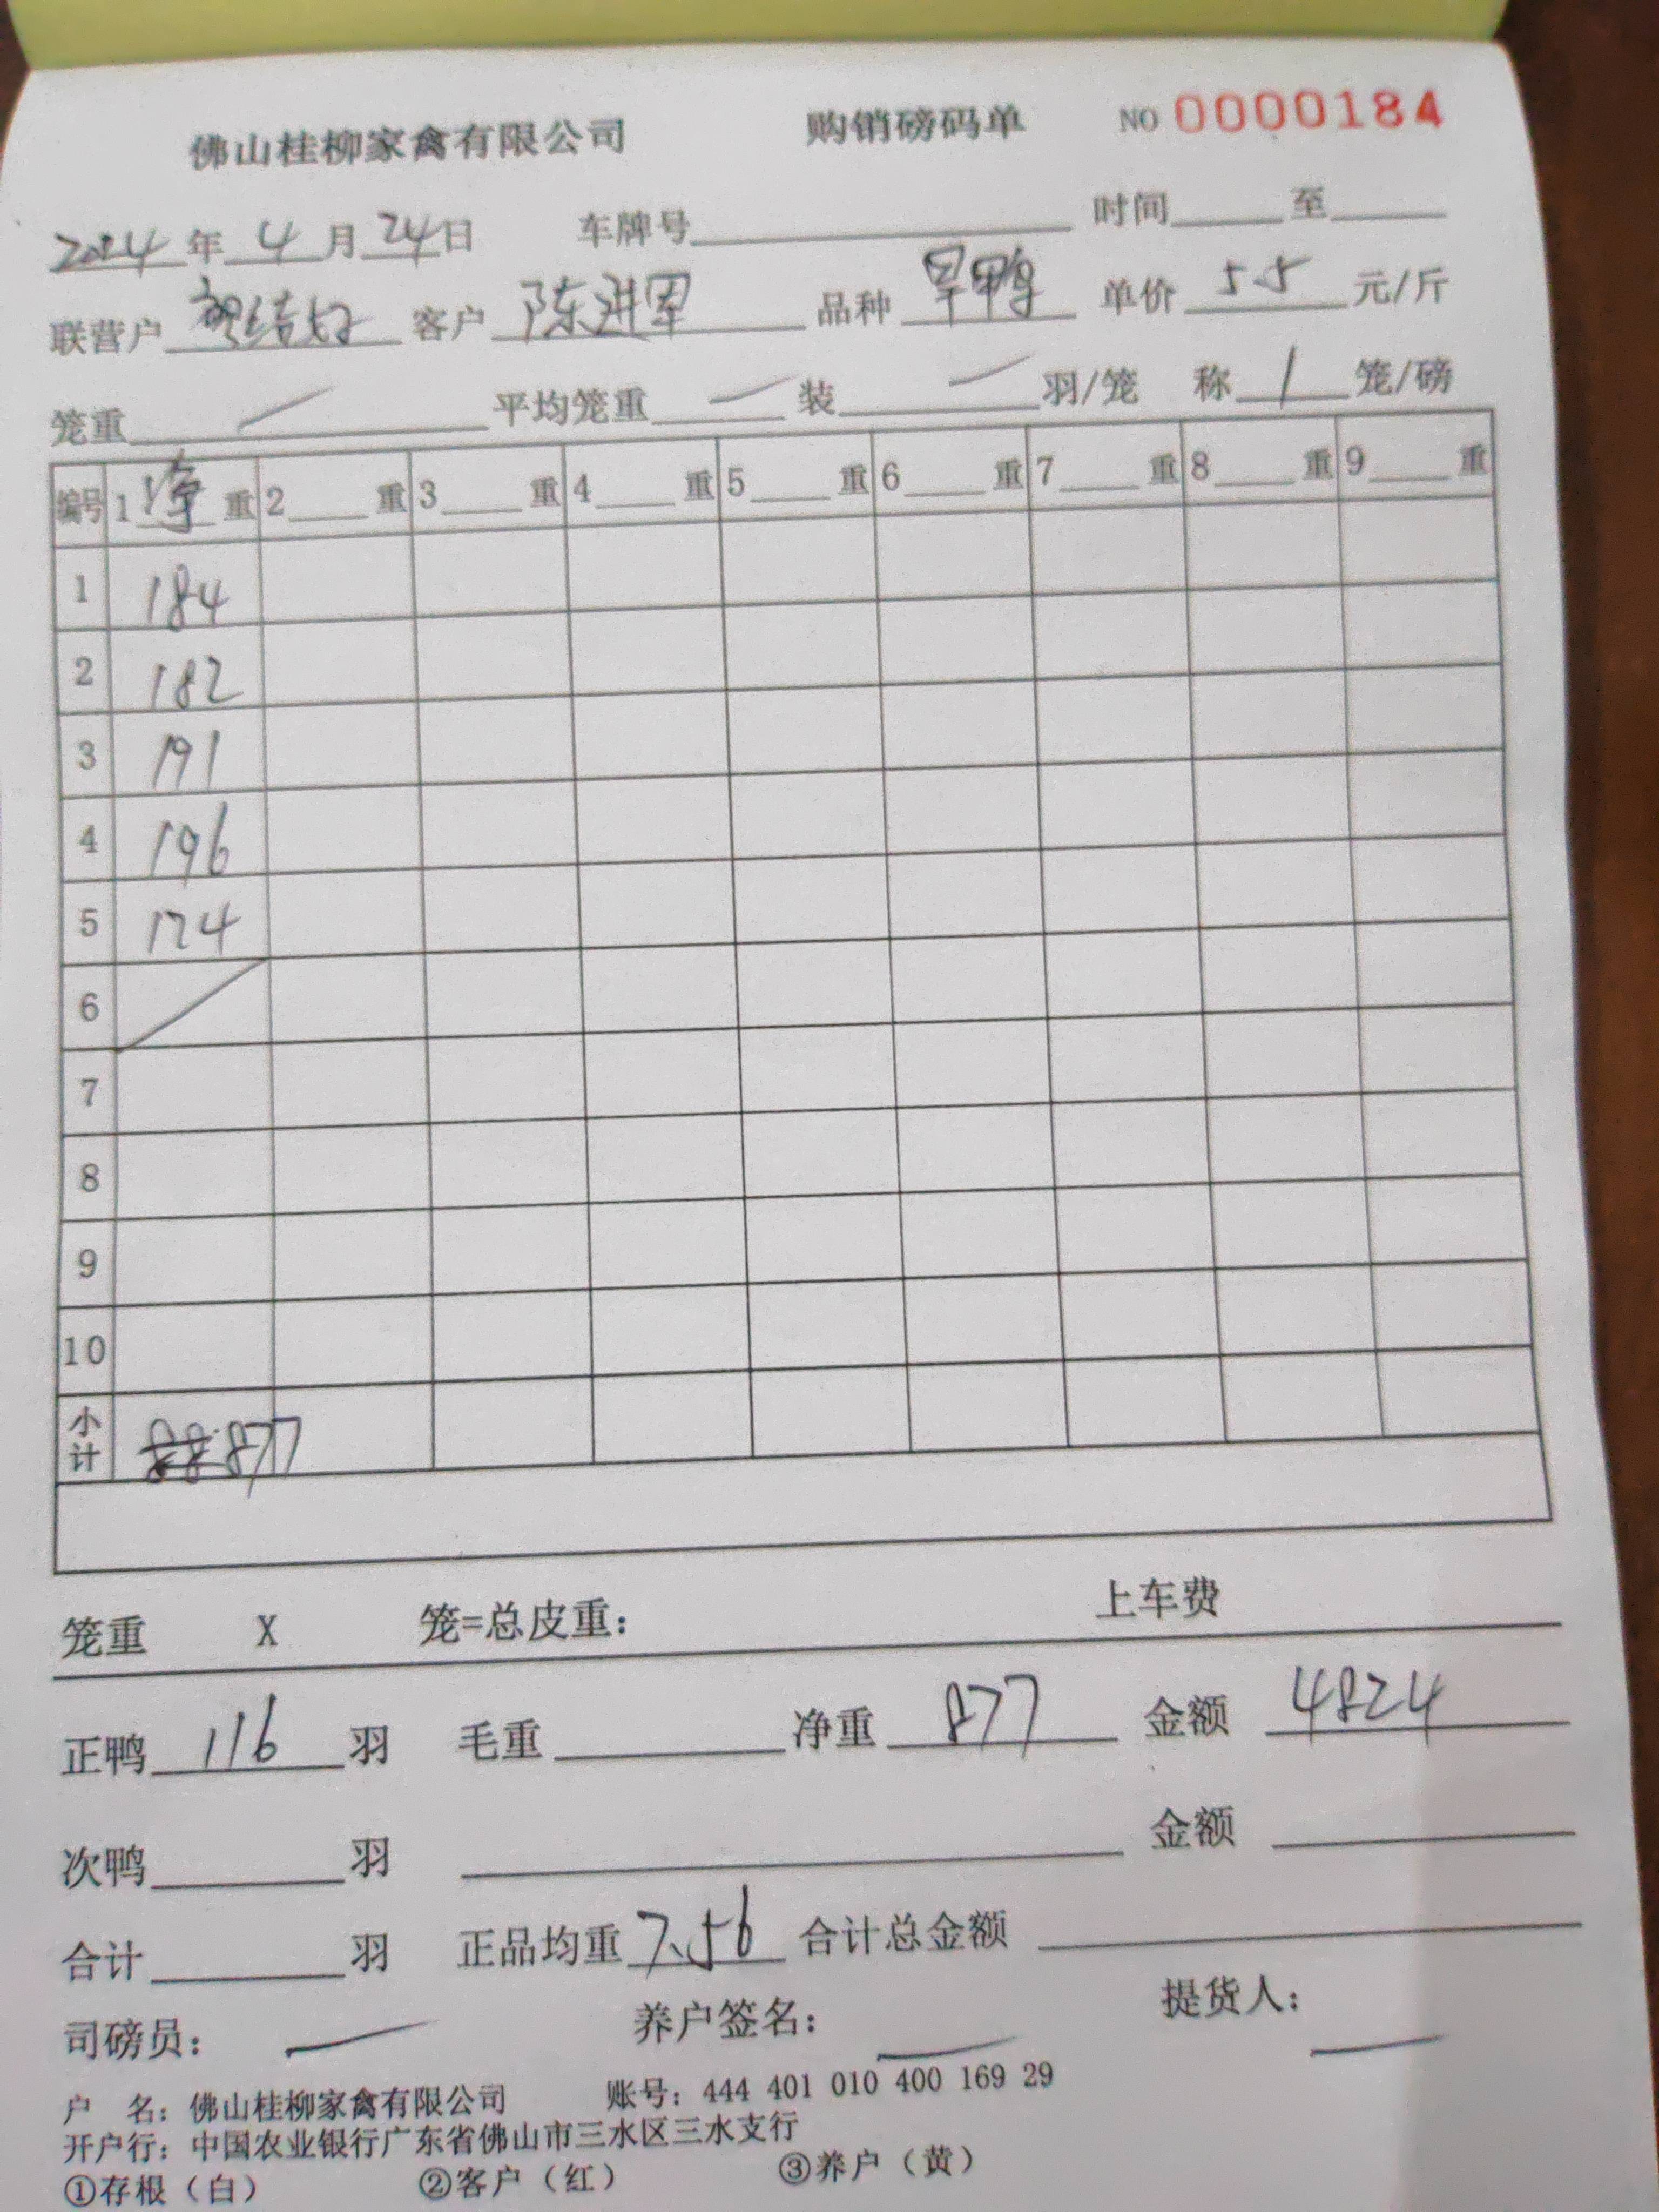 佛山桂柳家禽有限公司 购销磅码单 NO 0000184
2024年 4 月 24日 车牌号 时间 至
联营户 客户 陈进军 品种 旱鸭 单价 5.5 元/斤
笼重 — 平均笼重 — 装 — 羽/笼 称 1 笼/磅
编号 1 净 重 2 重 3 重 4 重 5 重 6 重 7 重 8 重 9 重
1 184
2 182
3 191
4 196
5 124
6
7
8
9
10
小计 877
笼重 X 笼=总皮重： 上车费
正鸭 116 羽 毛重 净重 877 金额 4824
次鸭 羽 金额
合计 羽 正品均重 7.56 合计总金额
司磅员： — 养户签名： — 提货人： —
户 名：佛山桂柳家禽有限公司 账号：444 401 010 400 169 29
开户行：中国农业银行广东省佛山市三水区三水支行
①存根（白） ②客户（红） ③养户（黄）